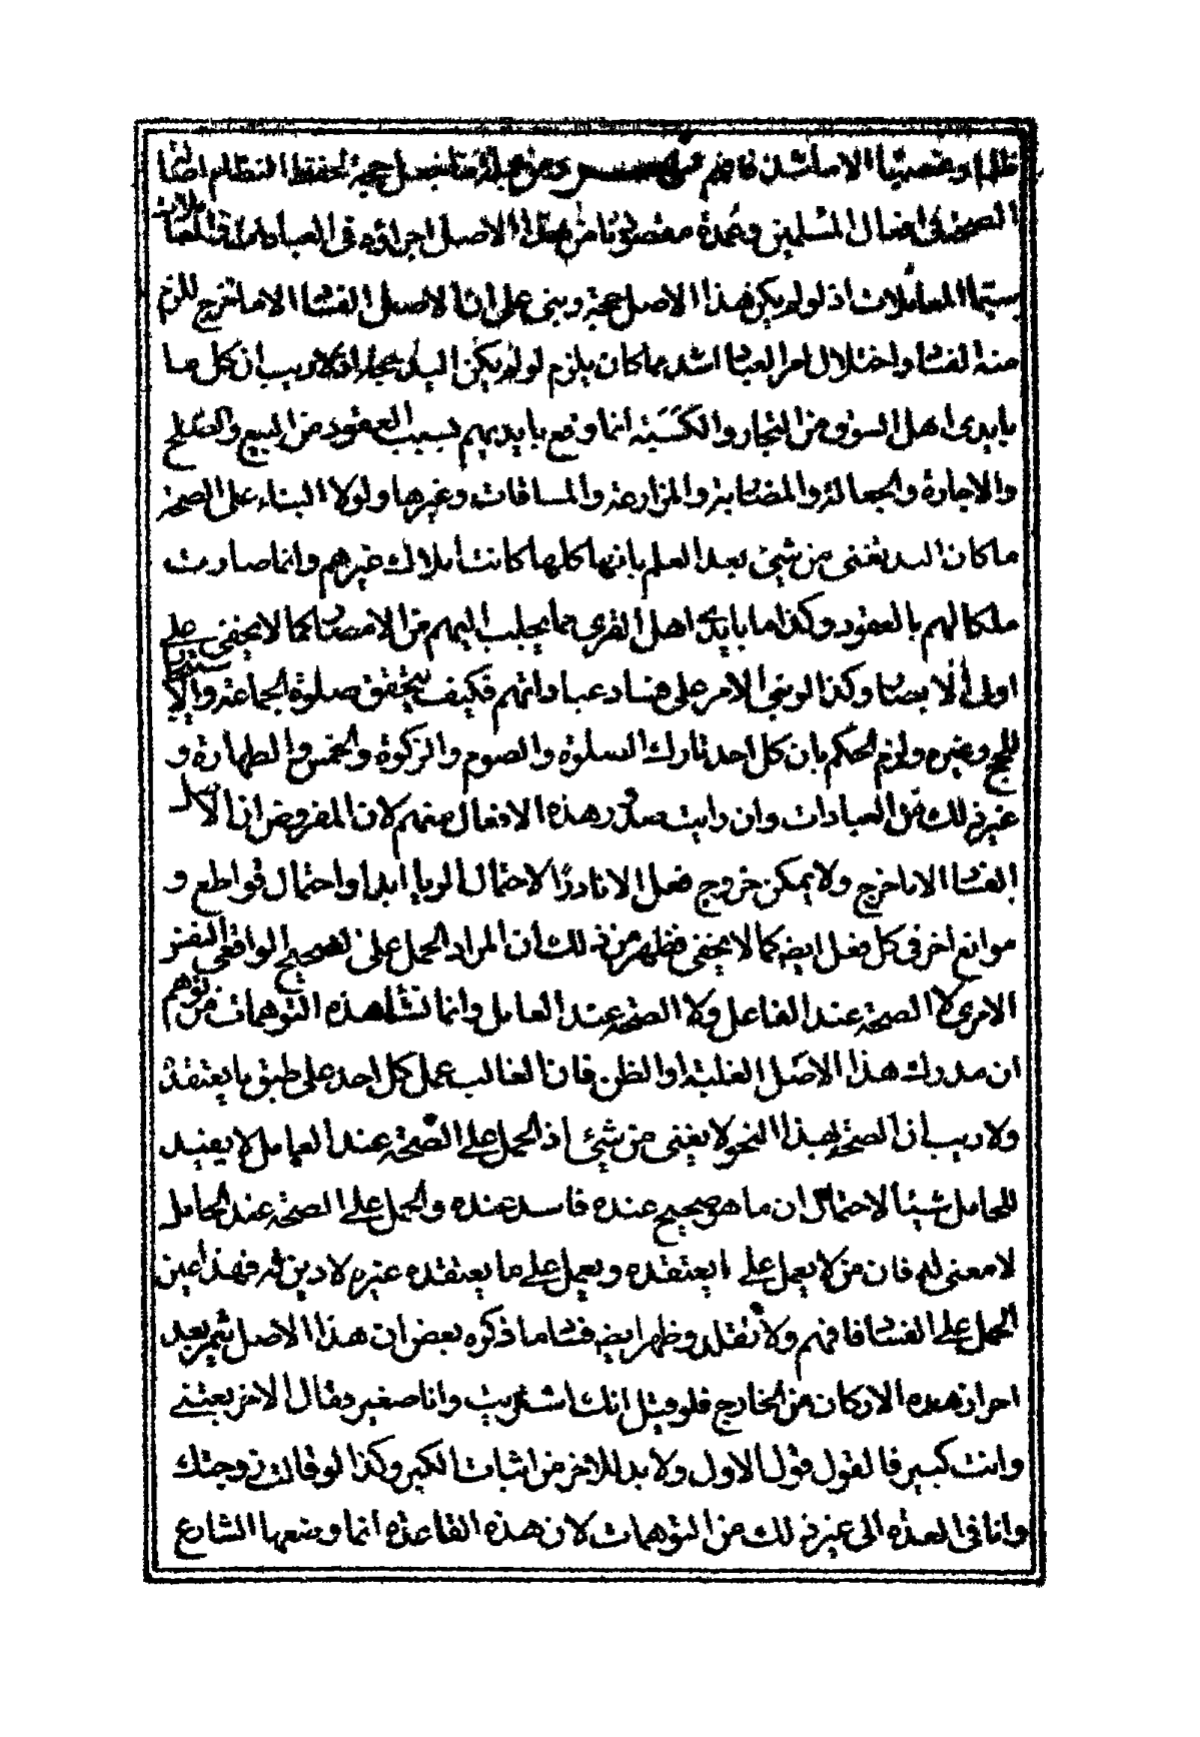 ظلما وغصبا الا ما شذ فافهم ومن جملة ما جعل حجة لحفظ النظام اصالة
الصحة في افعال المسلمين وعمدة مقصودنا من هذا الاصل اجرائه في العبادات والمعاملات
سيما المعاملات اذ لو لم يكن هذا الاصل حجة وبنى على ان الاصل الفساد الا ما خرج للزم
منه الفساد واختلال امر العباد اشد مما كان يلزم لو لم يكن اليد حجة اذ لا ريب ان كل ما
بايدى اهل السوق من التجار والكسبة انما وقع بايديهم بسبب العقود من البيع والصلح
والاجارة والجعالة والمضاربة والمزارعة والمساقات وغيرها ولولا البناء على الصحة
ما كان اليد تغنى من شئ بعد العلم بانها كلها كانت املاك غيرهم وانما صارت
ملكا لهم بالعقود وكذا ما بايدى اهل القرى مما يجلب اليهم من الامصار كما لا يخفى على
اولى الابصار وكذا لو بنى الامر على فساد عباداتهم فكيف يتحقق صلوة الجماعة والاستيجار
للحج وغيره ولزم الحكم بان كل احد تارك الصلوة والصوم والزكوة والخمس والطهارة و
غير ذلك من العبادات وان رايت صدور هذه الافعال منهم لان المفروض ان الاصل
الفساد الا ما خرج ولا يمكن خروج فعل الا نادرا لاحتمال الريا ابدا واحتمال قواطع و
موانع اخر فى كل فعل ايضه كما لا يخفى فظهر من ذلك ان المراد الحمل على الصحيح الواقعى النفس
الامرى لا الصحة عند الفاعل ولا الصحة عند العامل وانما نشأ هذه التوهمات من توهم
ان مدرك هذا الاصل الغلبة او الظن فان الغالب عمل كل احد على طبق ما يعتقده
ولا ريب ان الصحة بهذا النحو لا يغنى من شئ اذ الحمل على الصحة عند العامل لا يفيد
للحامل شيئا لاحتمال ان ما هو صحيح عنده فاسد عنده والحمل على الصحة عند الحامل
لا معنى له فان من لا يعمل على ما يعتقده ويعمل على ما يعتقده غيره لا دين له فهذا عين
الحمل على الفساد فافهم ولا تقلد وظهر ايضه فساد ما ذكره بعض ان هذا الاصل يثمر بعد
احراز هذه الاركان من الخارج فلو قيل انك اشتريت وانا صغير وقال الاخر بعتنى
وانت كبير فالقول قول الاول ولا بد للاخر من اثبات الكبر وكذا لو قالت زوجتك
وانا فى العدة الى غير ذلك من التوهمات لان هذه القاعدة انما وضعها الشارع